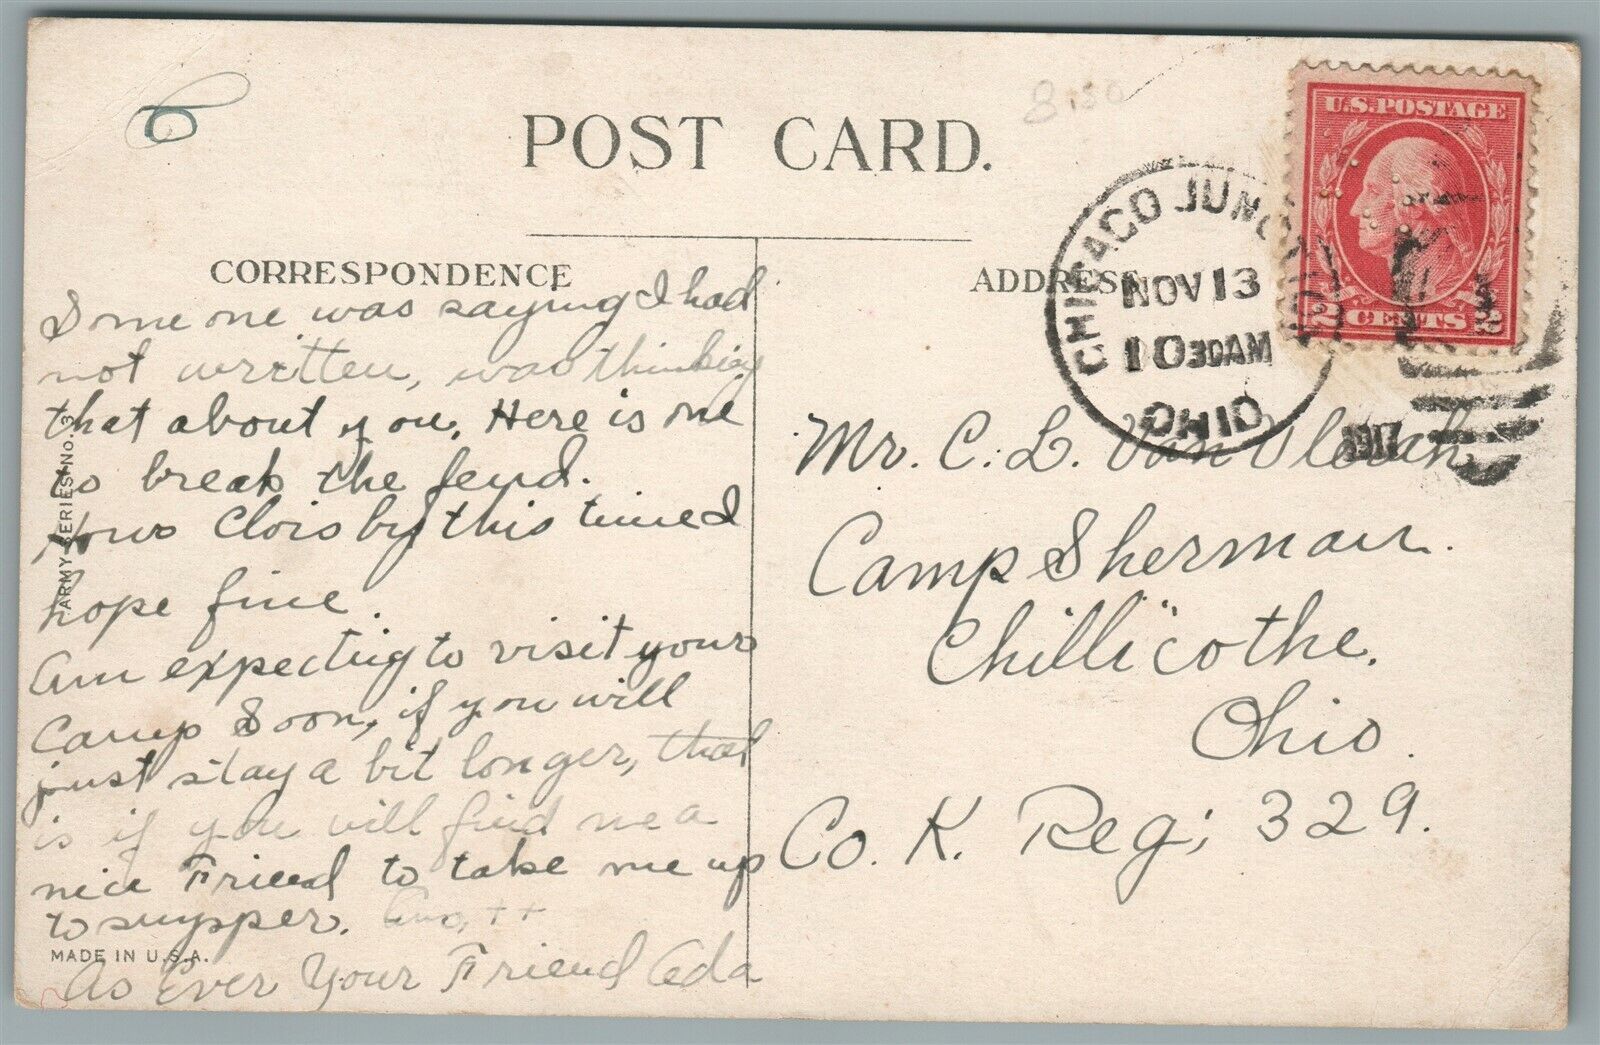 8.50
POST CARD.
CORRESPONDENCE
Some one was saying I had
not written, was thinking
that about you. Here is one
to break the feud.
Hows Clois by this time I
hope fine.
Am expecting to visit your
Camp Soon, if you will
just stay a bit longer, that
is if you will find me a
nice Friend to take me up
to supper. Ans, ++
As Ever Your Friend Ada
ARMY SERIES NO. 3
MADE IN U.S.A.
ADDRESS
CHICAGO JUNCTION
NOV 13
10 30AM
OHIO
U.S. POSTAGE
2 CENTS 2
Mr. C. L. Van
Camp Sherman.
Chillicothe.
Ohio.
Co. K. Reg; 329.